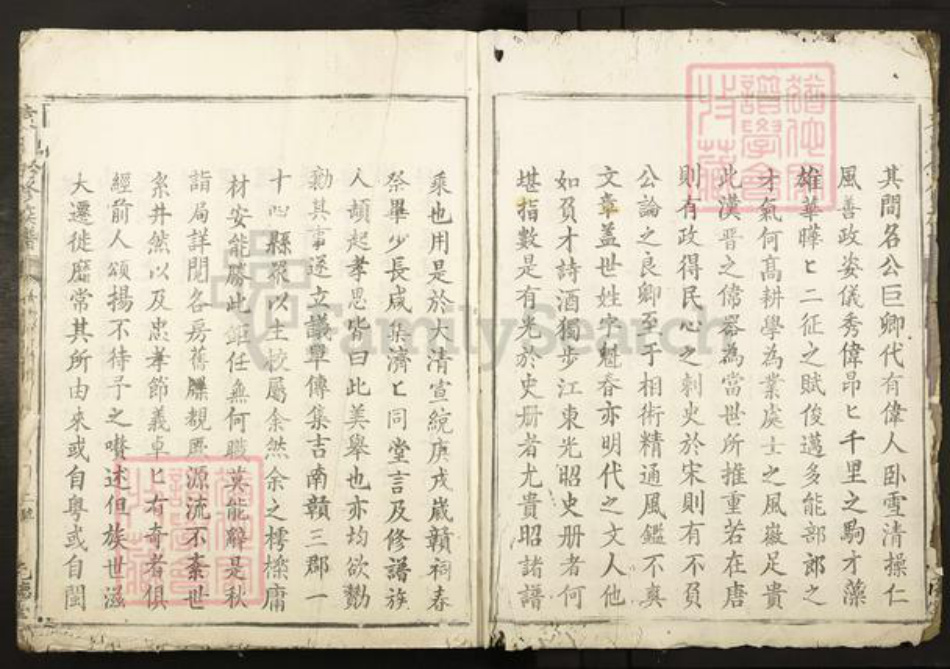 其間名公巨卿代有偉人卧雪清操仁
風善政姿儀秀偉昂匕千里之駒才藻
雄華曄匕二征之賦俊邁多能部郎之
才氣何高耕學為業處士之風嶶足貴
此漢晋之偉器為當世所推重若在唐
則有政得民心之刺史於宋則有不負
公論之良卿至于相術精通風鑑不爽
文章盖世姓字魁香亦明代之文人他
如負才詩酒獨步江東光昭史册者何
堪指數是有光於史册者尤貴昭諸譜
乘也用是於大清宣統庚戌歲贛祠春
祭畢少長咸集濟匕同堂言及修譜族
人頡起孝思皆曰此美舉也亦均欲勷
勷其事遂立議單傳集吉南贛三郡一
十 縣衆以主校屬余然余之樗櫟庸
材安能勝此鉅任無何職莫能辭是秋
詣局詳閱各房舊牒覩歷源流不紊世
系井然以及忠孝節義卓匕有奇者俱
經前人頌揚不待予之贅述但族世滋
大遷徙靡常其所由來或自粤或自閩
FamilySearch